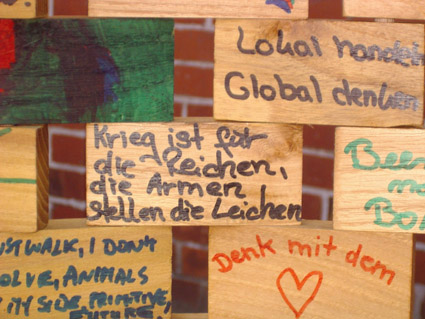 Lokal handeln
Global denken
Krieg ist für
die Reichen,
die Armen
stellen die Leichen
Beer
Bo
UST WALK, I DON'T
OLVE, ANIMALS
MY SIDE, PRIMITIVE,
FUTURE
Denk mit dem